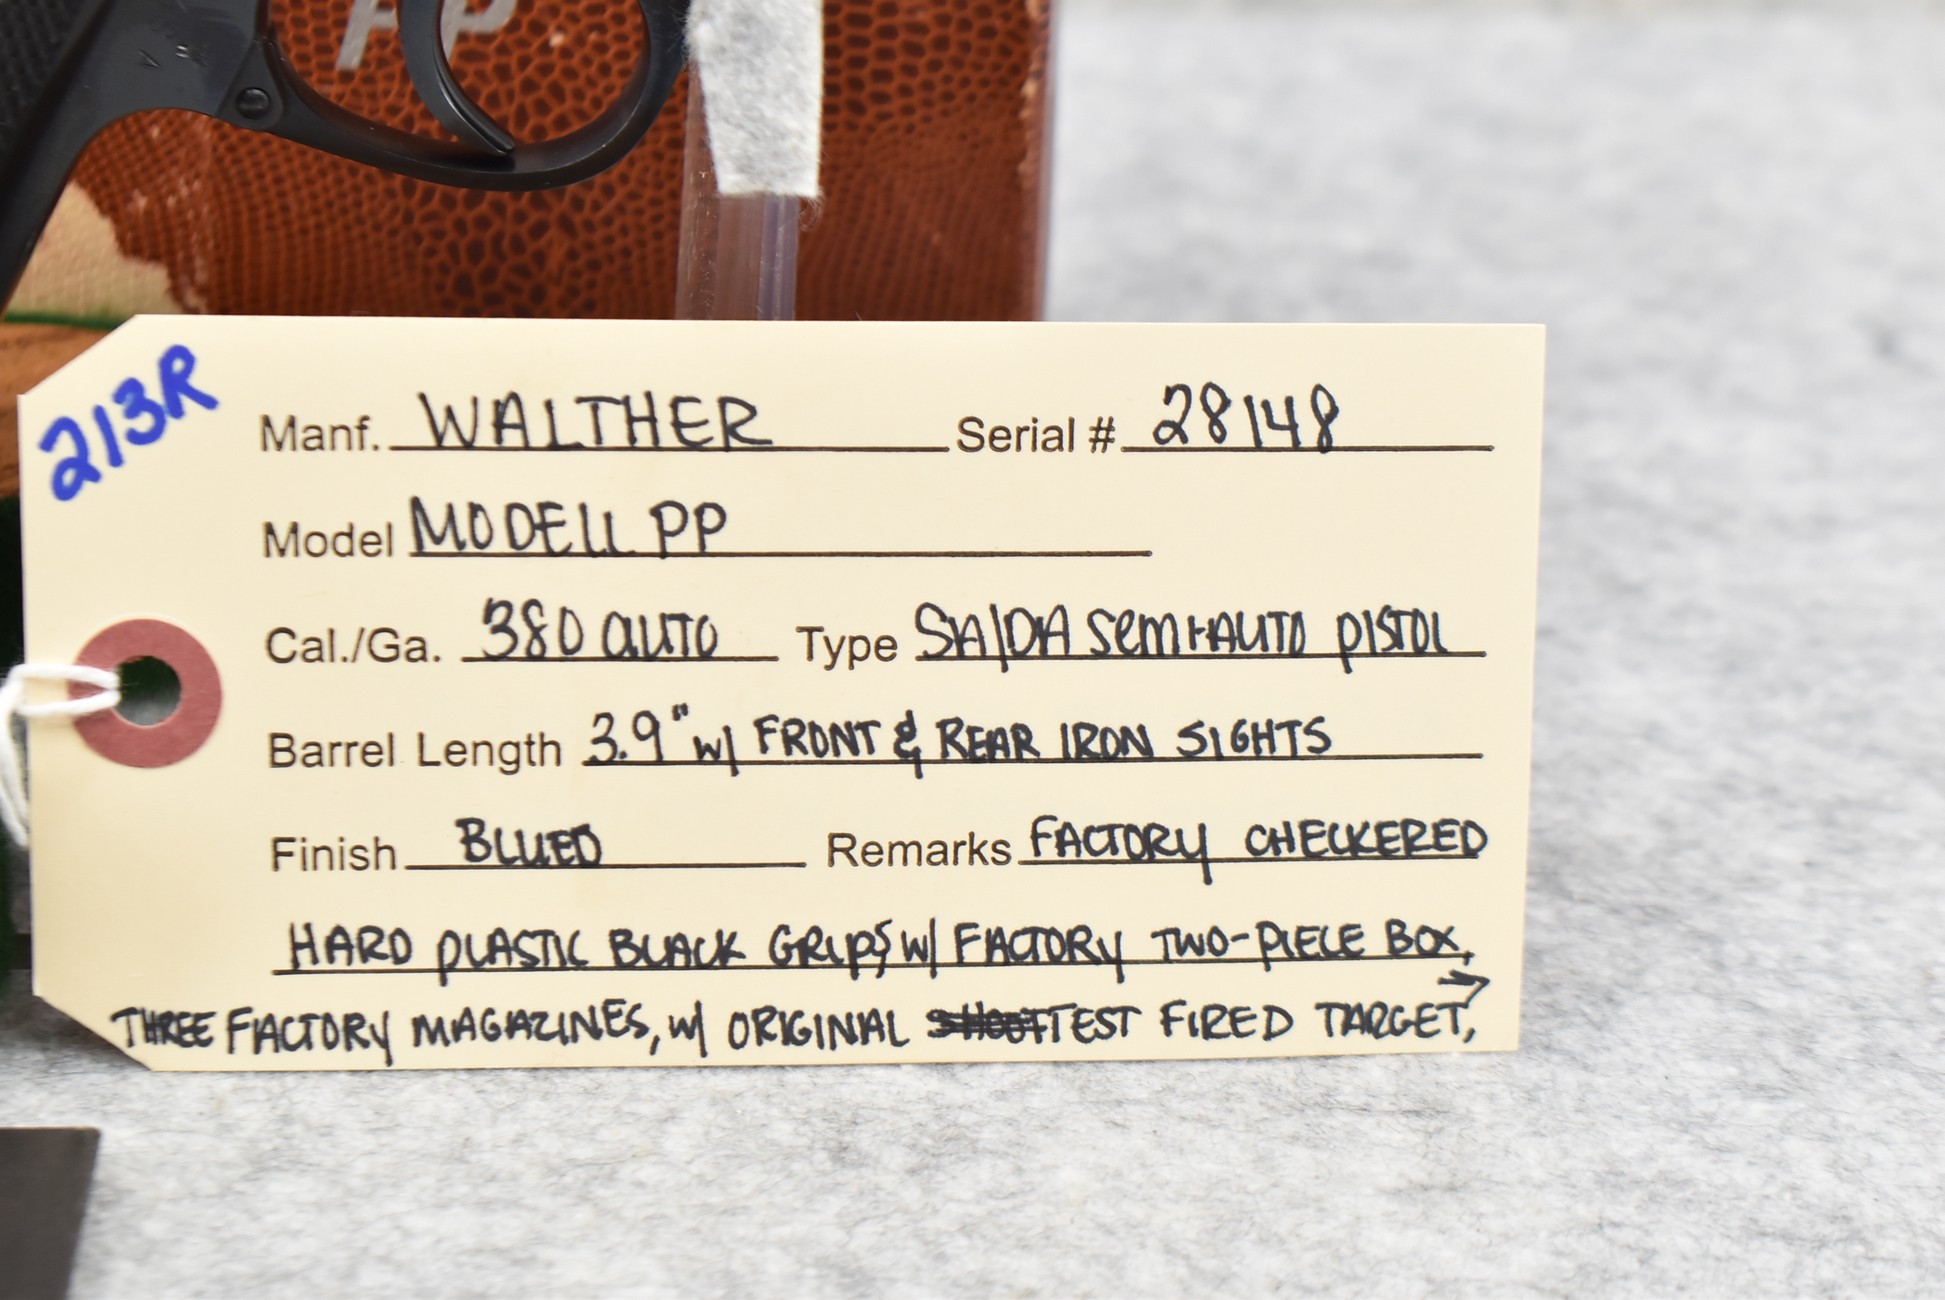 PP
213R
Manf. WALTHER Serial # 28148
Model MODELL PP
Cal./Ga. 380 auto Type SA/DA semi-auto pistol
Barrel Length 3.9" w/ FRONT & REAR IRON SIGHTS
Finish BLUED Remarks FACTORY CHECKERED
HARD PLASTIC BLACK GRIPS w/ FACTORY TWO-PIECE BOX,
THREE FACTORY MAGAZINES, w/ ORIGINAL TEST FIRED TARGET, →